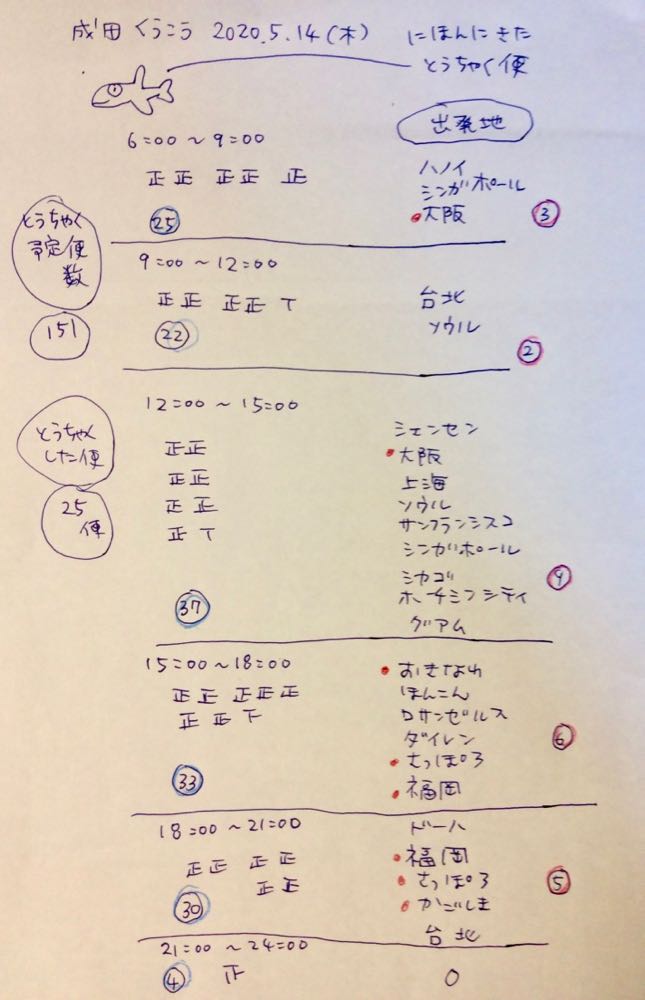 成田くうこう 2020.5.14(木) にほんにきた
とうちゃく便
出発地
6:00 ~ 9:00
正正 正正 正
ハノイ
シンガポール
大阪
25
3
とうちゃく
予定便
数
151
9:00 ~ 12:00
正正 正正 T
台北
ソウル
22
2
とうちゃく
した便
25
便
12:00 ~ 15:00
正正
正正
正正
正T
シェンセン
大阪
上海
ソウル
サンフランシスコ
シンガポール
シカゴ
ホーチミンシティ
グアム
37
9
15:00 ~ 18:00
正正 正正正
正正下
おきなわ
ほんこん
ロサンゼルス
ダイレン
さっぽろ
福岡
33
6
18:00 ~ 21:00
正正 正正
正正
ドーハ
福岡
さっぽろ
かごしま
台北
30
5
21:00 ~ 24:00
4
0